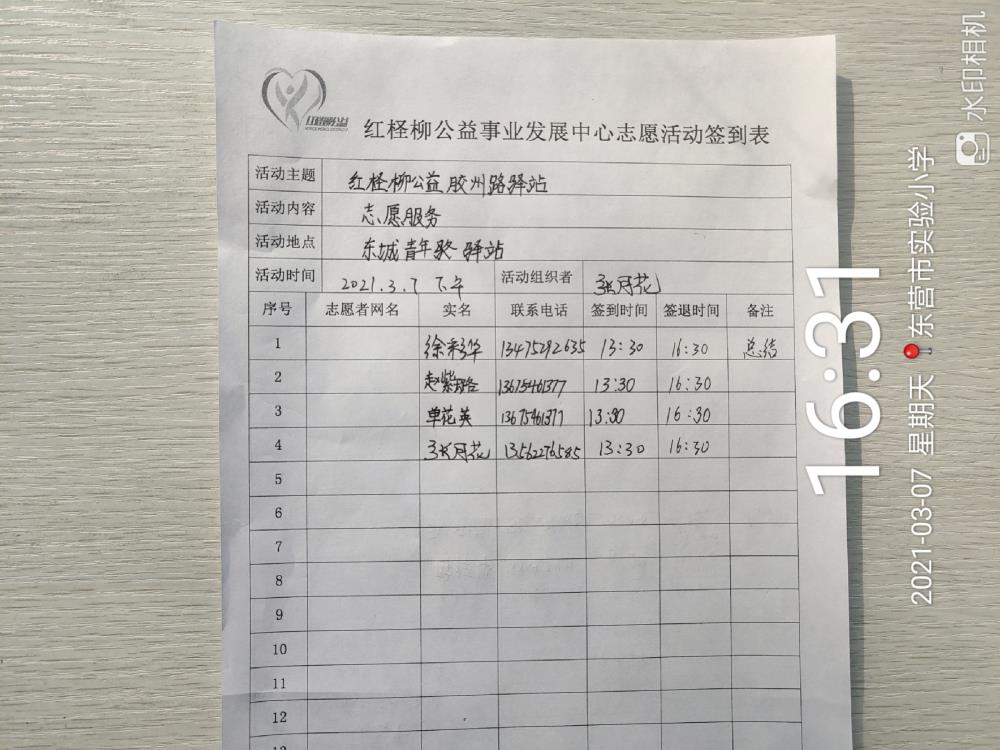 红柽柳公益
红柽柳公益事业发展中心志愿活动签到表
活动主题 红柽柳公益胶州路驿站
活动内容 志愿服务
活动地点 东城青年聚驿站
活动时间 2021.3.7 下午 活动组织者 张月花
序号 志愿者网名 实名 联系电话 签到时间 签退时间 备注
1 徐彩华 13475292635 13:30 16:30 总结
2 赵紫璐 13675461377 13:30 16:30
3 单花英 13675461377 13:30 16:30
4 张月花 13562276585 13:30 16:30
5
6
7
8
9
10
11
12
13
16:31
2021-03-07 星期天 东营市实验小学
水印相机